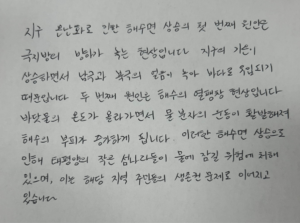 지구 온난화로 인한 해수면 상승의 첫 번째 원인은
극지방의 빙하가 녹는 현상입니다. 지구의 기온이
상승하면서 남극과 북극의 얼음이 녹아 바다로 유입되기
때문입니다. 두 번째 원인은 해수의 열팽창 현상입니다.
바닷물의 온도가 올라가면서 물 분자의 운동이 활발해져
해수의 부피가 증가하게 됩니다. 이러한 해수면 상승으로
인해 태평양의 작은 섬나라들이 물에 잠길 위험에 처해
있으며, 이는 해당 지역 주민들의 생존권 문제로 이어지고
있습니다